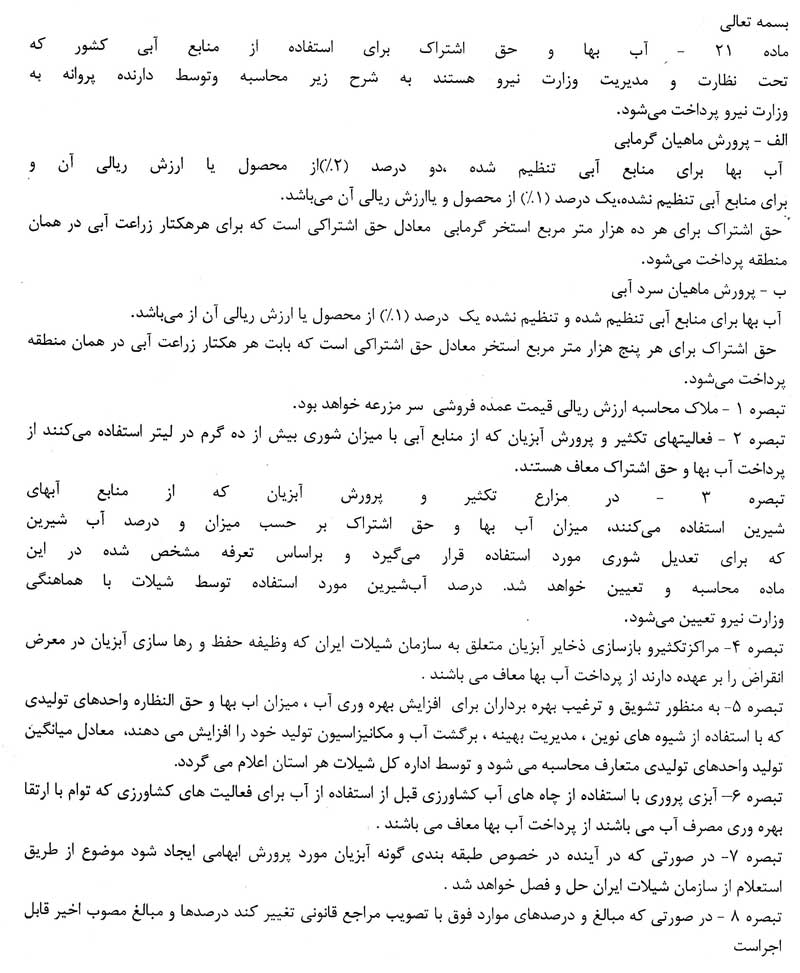 بسمه تعالی
ماده ۲۱ - آب بها و حق اشتراک برای استفاده از منابع آبی کشور که
تحت نظارت و مدیریت وزارت نیرو هستند به شرح زیر محاسبه وتوسط دارنده پروانه به
وزارت نیرو پرداخت می‌شود.
الف - پرورش ماهیان گرمابی
آب بها برای منابع آبی تنظیم شده ،دو درصد (۲٪)از محصول یا ارزش ریالی آن و
برای منابع آبی تنظیم نشده،یک درصد (۱٪) از محصول و یاارزش ریالی آن می‌باشد.
حق اشتراک برای هر ده هزار متر مربع استخر گرمابی معادل حق اشتراکی است که برای هرهکتار زراعت آبی در همان
منطقه پرداخت می‌شود.
ب - پرورش ماهیان سرد آبی
آب بها برای منابع آبی تنظیم شده و تنظیم نشده یک درصد (۱٪) از محصول یا ارزش ریالی آن از می‌باشد.
حق اشتراک برای هر پنج هزار متر مربع استخر معادل حق اشتراکی است که بابت هر هکتار زراعت آبی در همان منطقه
پرداخت می‌شود.
تبصره ۱ - ملاک محاسبه ارزش ریالی قیمت عمده فروشی سر مزرعه خواهد بود.
تبصره ۲ - فعالیتهای تکثیر و پرورش آبزیان که از منابع آبی با میزان شوری بیش از ده گرم در لیتر استفاده می‌کنند از
پرداخت آب بها و حق اشتراک معاف هستند.
تبصره ۳ - در مزارع تکثیر و پرورش آبزیان که از منابع آبهای
شیرین استفاده می‌کنند، میزان آب بها و حق اشتراک بر حسب میزان و درصد آب شیرین
که برای تعدیل شوری مورد استفاده قرار می‌گیرد و براساس تعرفه مشخص شده در این
ماده محاسبه و تعیین خواهد شد. درصد آب‌شیرین مورد استفاده توسط شیلات با هماهنگی
وزارت نیرو تعیین می‌شود.
تبصره ۴- مراکزتکثیرو بازسازی ذخایر آبزیان متعلق به سازمان شیلات ایران که وظیفه حفظ و رها سازی آبزیان در معرض
انقراض را بر عهده دارند از پرداخت آب بها معاف می باشند .
تبصره ۵- به منظور تشویق و ترغیب بهره برداران برای افزایش بهره وری آب ، میزان اب بها و حق النظاره واحدهای تولیدی
که با استفاده از شیوه های نوین ، مدیریت بهینه ، برگشت آب و مکانیزاسیون تولید خود را افزایش می دهند، معادل میانگین
تولید واحدهای تولیدی متعارف محاسبه می شود و توسط اداره کل شیلات هر استان اعلام می گردد.
تبصره ۶- آبزی پروری با استفاده از چاه های آب کشاورزی قبل از استفاده از آب برای فعالیت های کشاورزی که توام با ارتقا
بهره وری مصرف آب می باشند از پرداخت آب بها معاف می باشند .
تبصره ۷- در صورتی که در آینده در خصوص طبقه بندی گونه آبزیان مورد پرورش ابهامی ایجاد شود موضوع از طریق
استعلام از سازمان شیلات ایران حل و فصل خواهد شد .
تبصره ۸ - در صورتی که مبالغ و درصدهای موارد فوق با تصویب مراجع قانونی تغییر کند درصدها و مبالغ مصوب اخیر قابل
اجراست